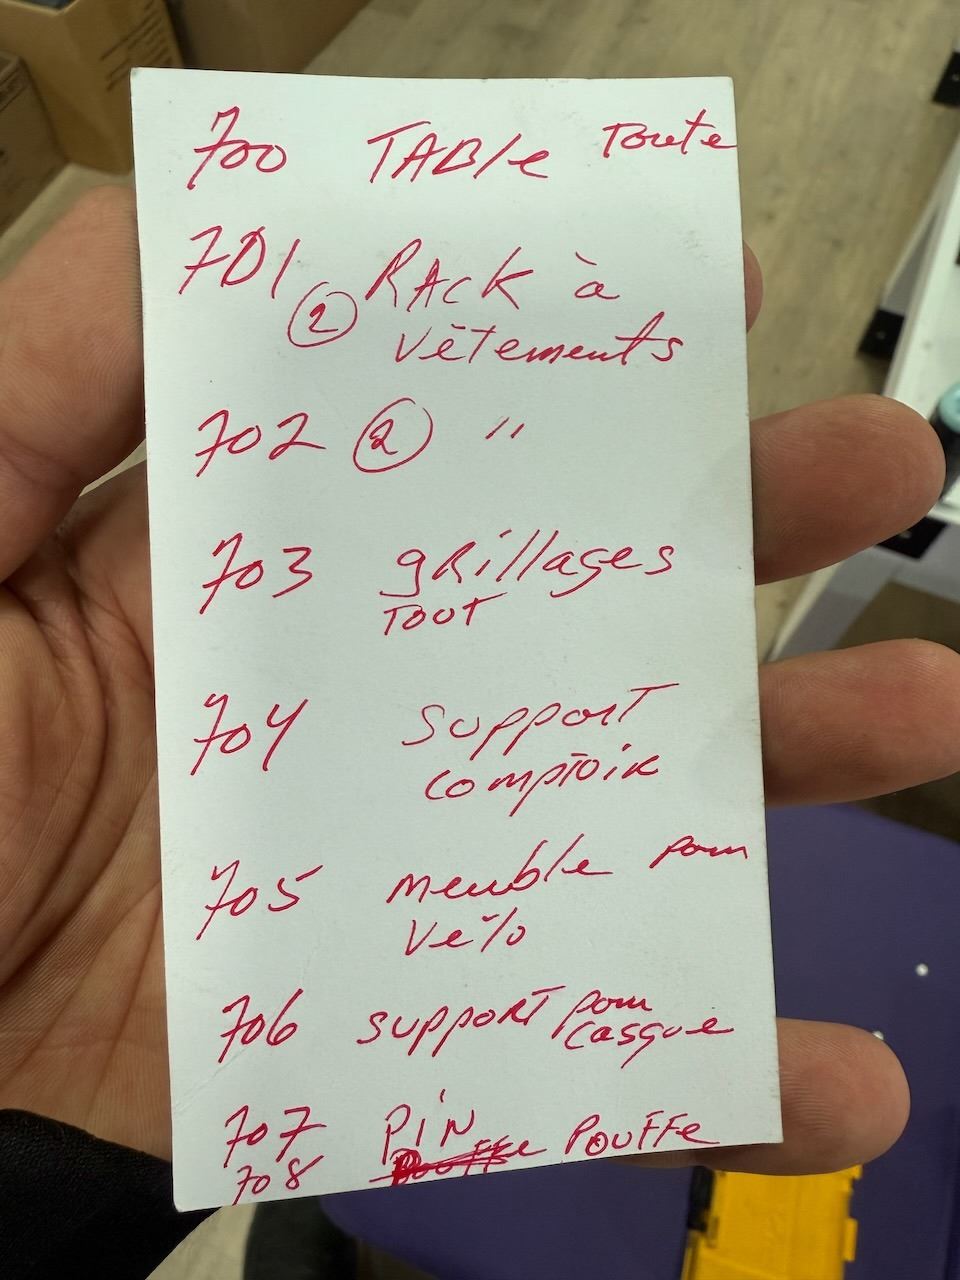 700 TABLE Toute
701 ② RACK à
vêtements
702 ② "
703 grillages
TOUT
704 support
comptoir
705 meuble pour
vélo
706 support pour
casque
707 PIN
708 Pouffe POUFFE